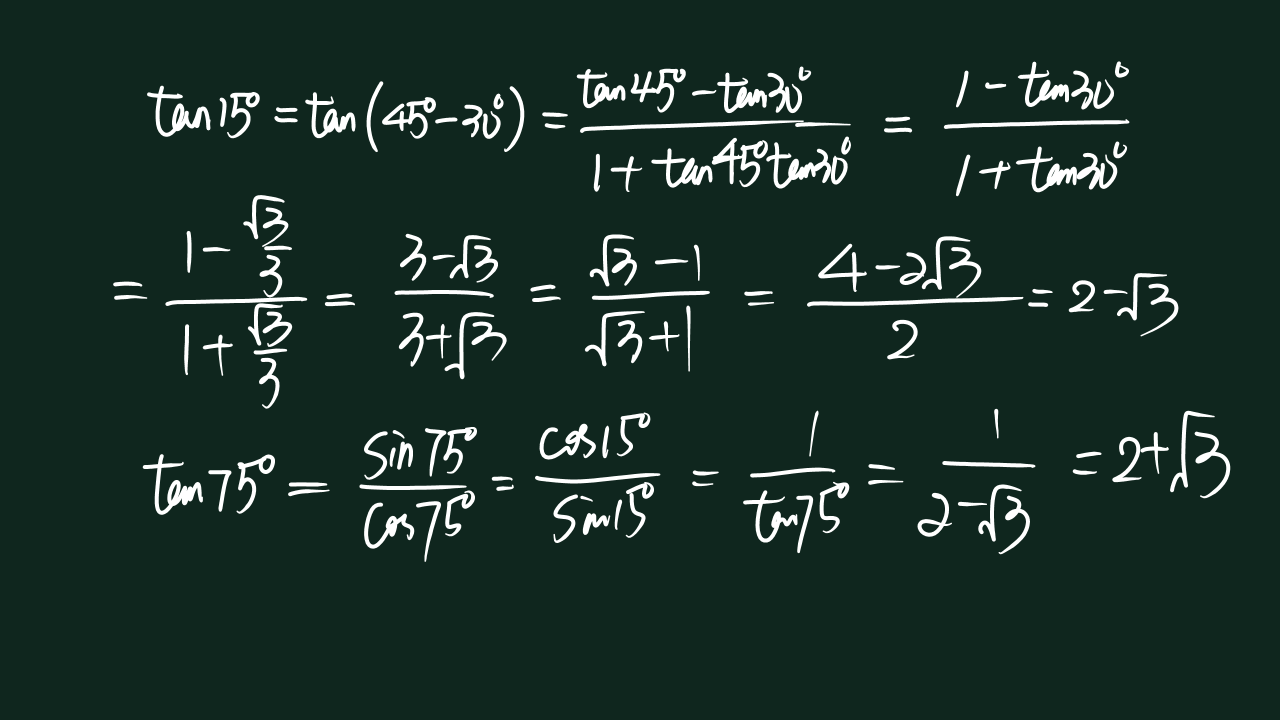 tan15° = tan(45°-30°) = (tan45°-tan30°)/(1+tan45°tan30°) = (1-tan30°)/(1+tan30°)
= (1-√3/3)/(1+√3/3) = (3-√3)/(3+√3) = (√3-1)/(√3+1) = (4-2√3)/2 = 2-√3
tan75° = sin75°/cos75° = cos15°/sin15° = 1/tan75° = 1/(2-√3) = 2+√3